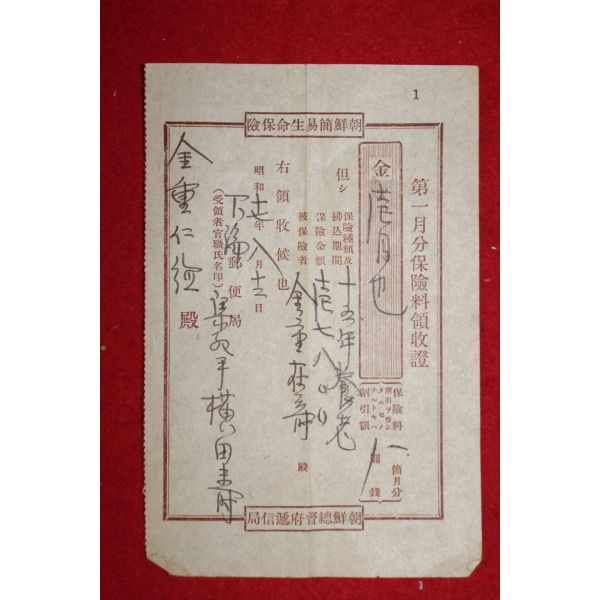 1
朝鮮簡易生命保險
第一月分保險料領收證
金 壱円也
保險料 箇月分
割引ヲ爲シタルモノナルトキハ
割引額 圓 錢
但シ
保險種類及
拂込期間 十五年養老
保險金額
被保險者 金重 殿
右領收候也
昭和十七年八月十三日
郵便局
(受領者官職氏名印)
金重仁 殿
朝鮮總督府遞信局